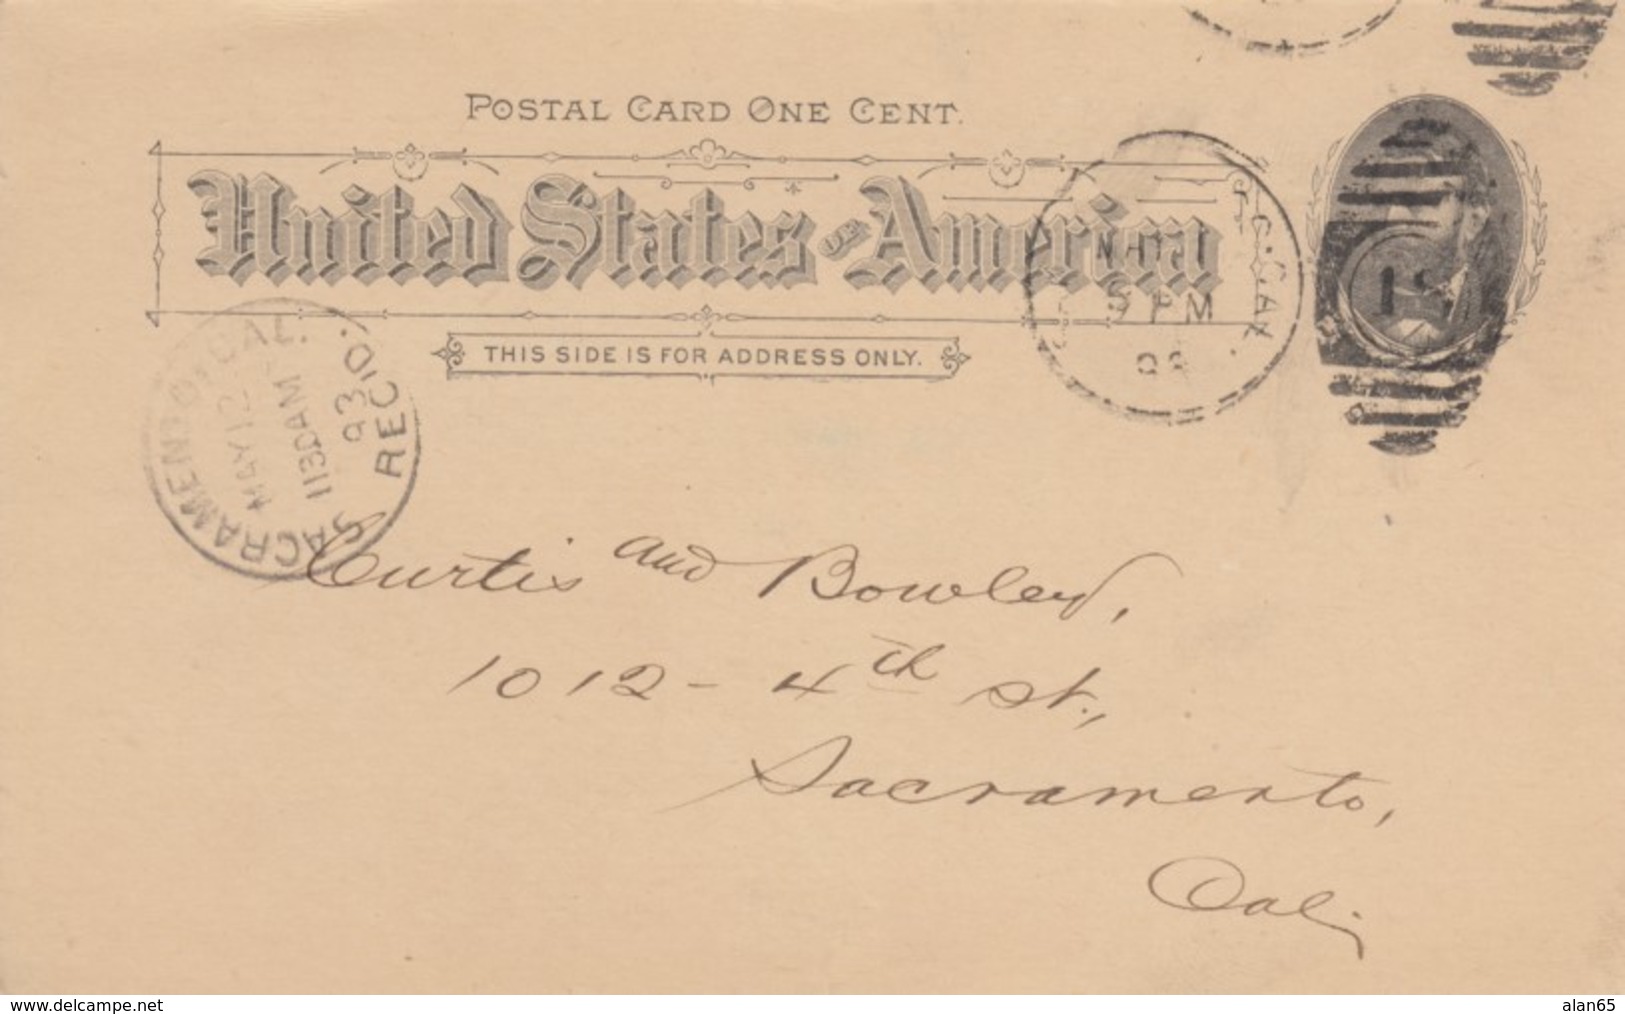 POSTAL CARD ONE CENT.
United States OF America
THIS SIDE IS FOR ADDRESS ONLY.
9 PM
SACRAMENTO, CAL.
MAY 12
1130AM
93
REC'D.
Curtis and Bowley,
1012 - 4th St.,
Sacramento,
Cal.
www.delcampe.net
alan65